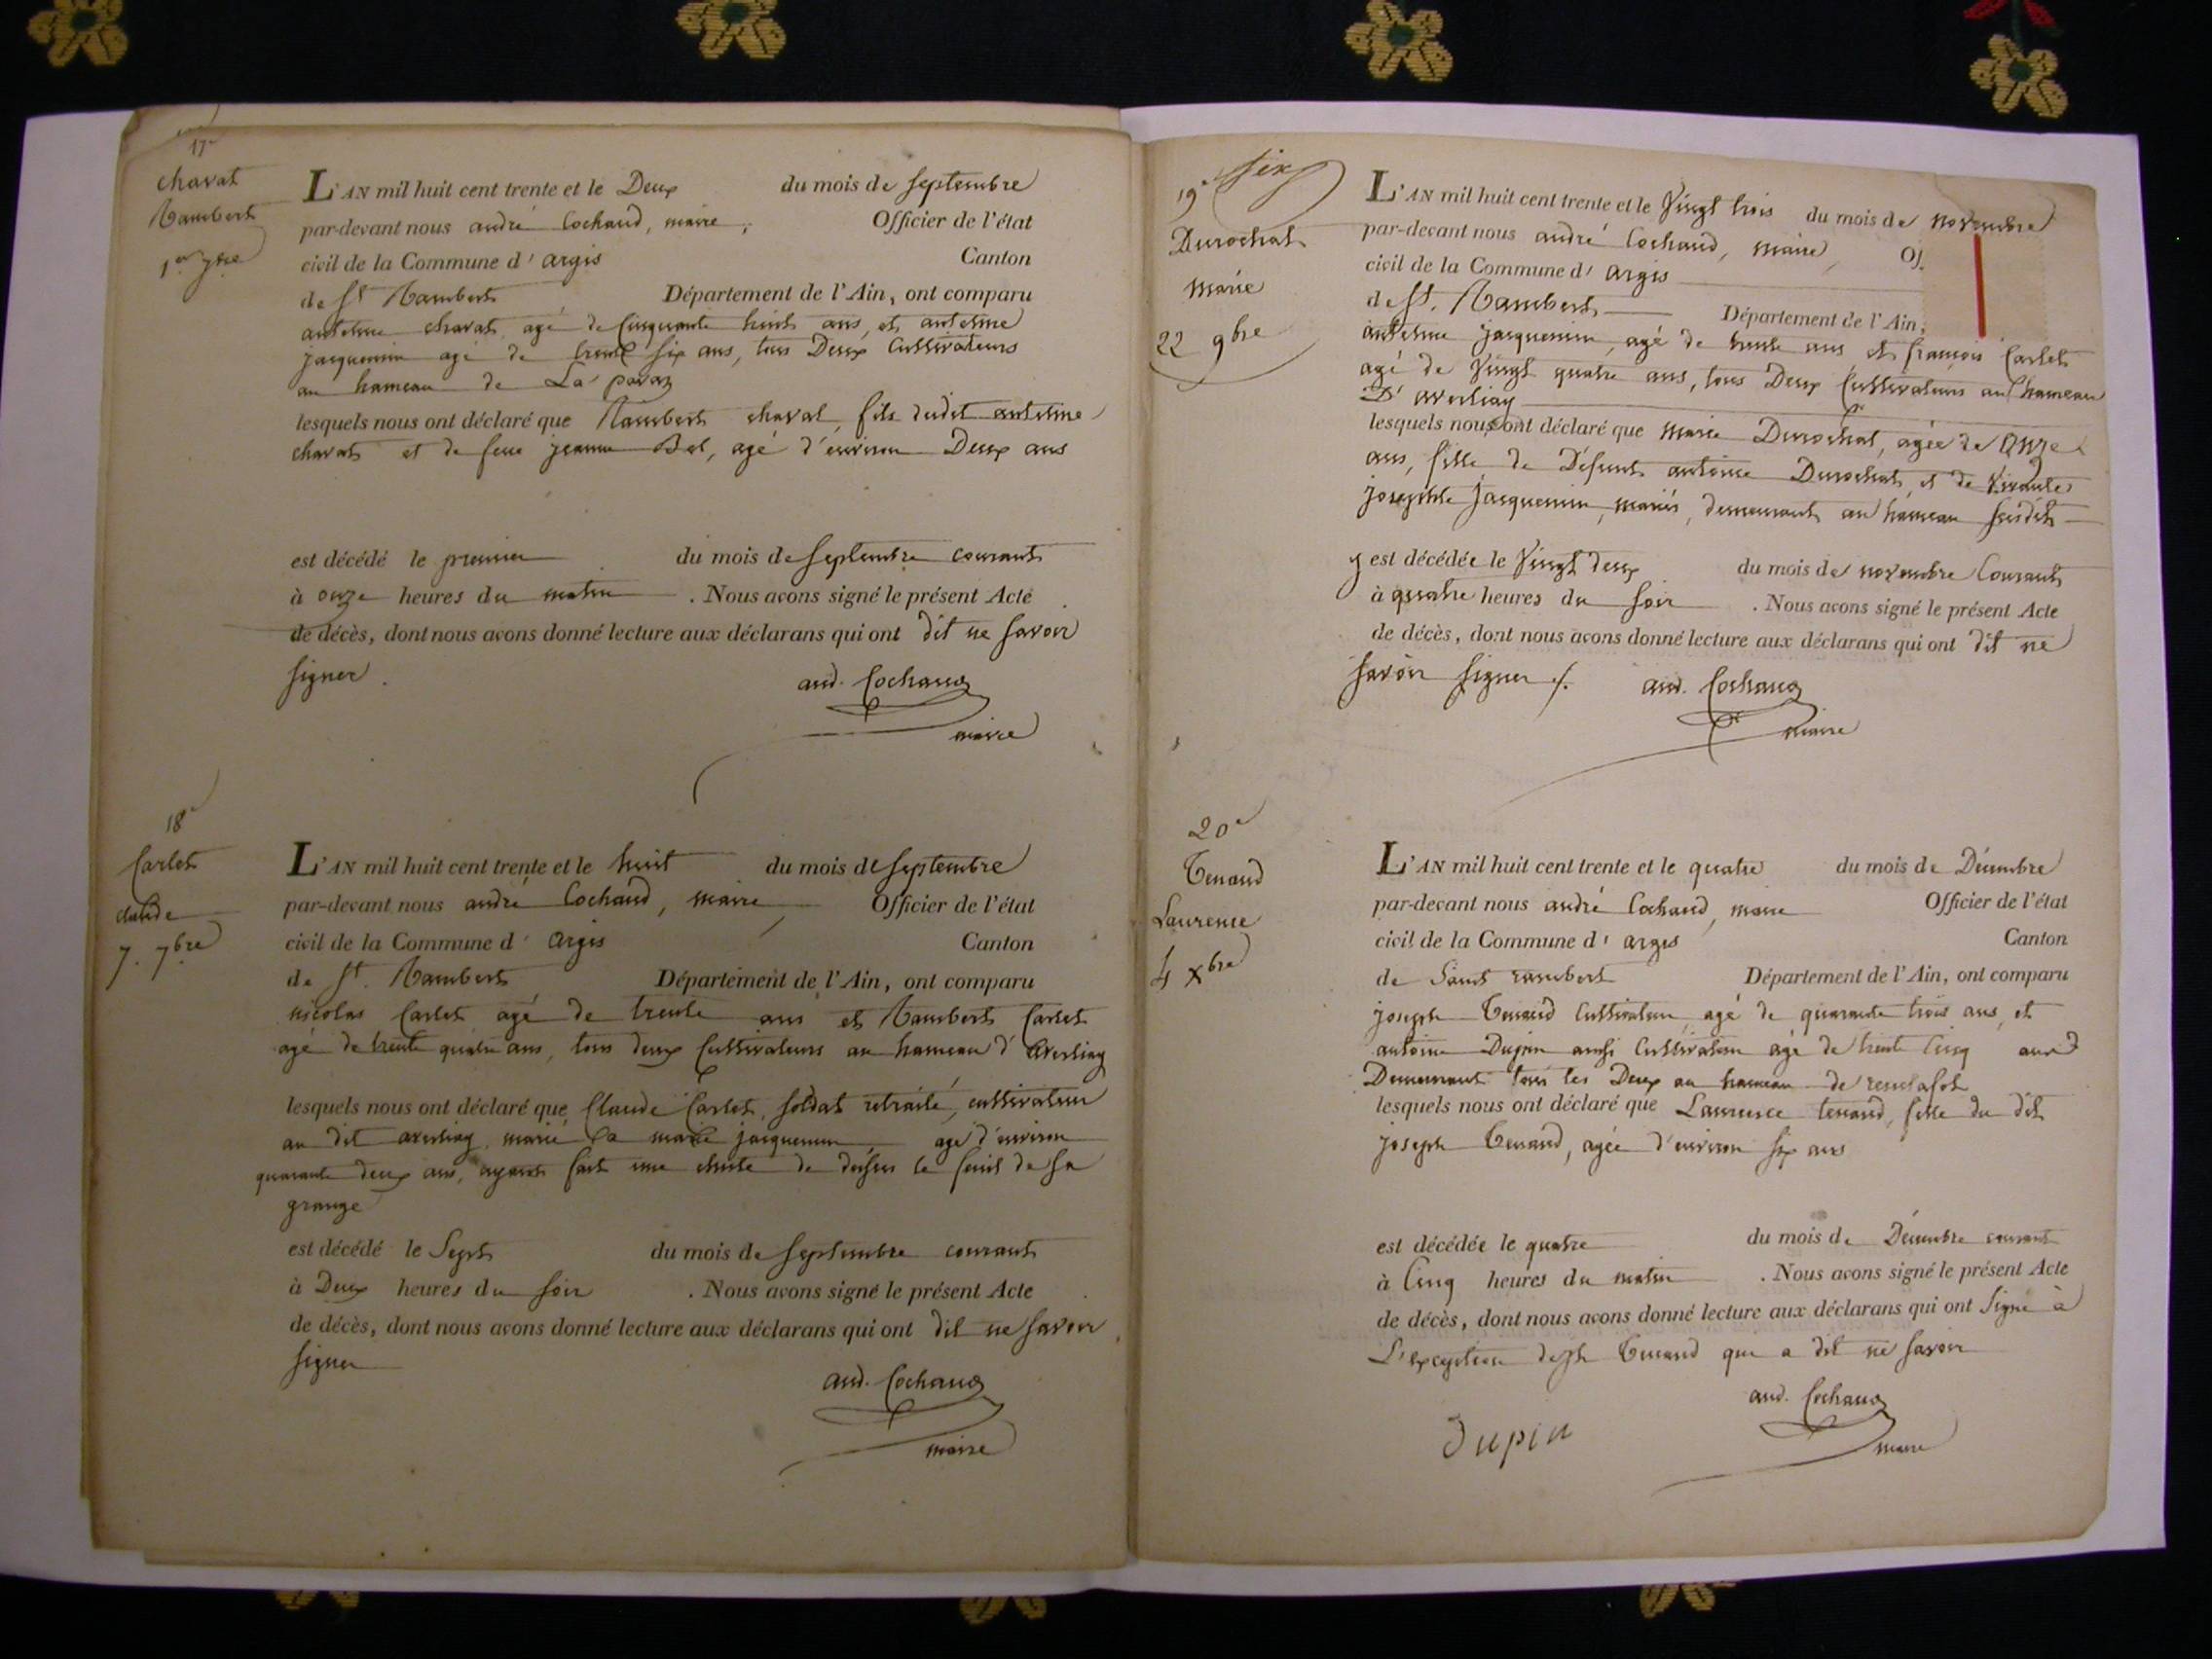 17e
chavat
Rambert
1er 7bre
L'AN mil huit cent trente et le Deux du mois de septembre
par-devant nous andré Cochaud, maire, Officier de l'état
civil de la Commune d' argis Canton
de St Rambert Département de l'Ain, ont comparu
antelme chavat agé de Cinquante huit ans, et antelme
jacquemin agé de trente six ans, tous Deux Cultivateurs
au hameau de La
lesquels nous ont déclaré que Rambert chavat fils dudit antelme
chavat et de feue jeanne Bel, agé d'environ Deux ans
est décédé le premier du mois de septembre courant
à onze heures du matin . Nous avons signé le présent Acte
de décès, dont nous avons donné lecture aux déclarans qui ont dit ne savoir
signer.
and. Cochaud
maire
18e
Carlet
claude
7. 7bre
L'AN mil huit cent trente et le huit du mois de septembre
par-devant nous andré Cochaud, maire Officier de l'état
civil de la Commune d' argis Canton
de St. Rambert Département de l'Ain, ont comparu
nicolas Carlet agé de trente ans et Rambert Carlet
agé de trente quatre ans, tous deux Cultivateurs au hameau d' averliaz
lesquels nous ont déclaré que Claude Carlet, soldat retraité, cultivateur
au dit averliaz marié à marie jacquemin agé d'environ
quarante deux ans, ayant fait une chute de dessus le fenil de sa
grange
est décédé le Sept du mois de septembre courant
à Deux heures du soir . Nous avons signé le présent Acte
de décès, dont nous avons donné lecture aux déclarans qui ont dit ne savoir
signer
and. Cochaud
maire
six
19e
Durochat
marie
22 9bre
L'AN mil huit cent trente et le Vingt trois du mois de novembre
par-devant nous andré Cochaud, maire, Of
civil de la Commune d' argis
de St. Rambert Département de l'Ain,
antelme jacquemin, agé de trente ans et françois Carlet
agé de Vingt quatre ans, tous Deux Cultivateurs au hameau
D' averliaz
lesquels nous ont déclaré que marie Durochat, agée de Onze
ans, fille de Défunt antoine Durochat, et de Vivante
josephte jacquemin, mariés, demeurant au hameau susdit
y est décédée le Vingt deux du mois de novembre Courant
à quatre heures du soir . Nous avons signé le présent Acte
de décès, dont nous avons donné lecture aux déclarans qui ont dit ne
savoir signer /.
and. Cochaud
maire
20e
Tenand
Laurence
4 Xbre
L'AN mil huit cent trente et le quatre du mois de Décembre
par-devant nous andré Cochaud, maire Officier de l'état
civil de la Commune d' argis Canton
de Saint rambert Département de l'Ain, ont comparu
joseph Tenand Cultivateur, agé de quarante trois ans, et
antoine Dupin aussi Cultivateur agé de trente Cinq ans
Demeurant tous les Deux au hameau de
lesquels nous ont déclaré que Laurence tenand, fille du dit
joseph Tenand, agée d'environ six ans
est décédée le quatre du mois de Décembre courant
à Cinq heures du matin . Nous avons signé le présent Acte
de décès, dont nous avons donné lecture aux déclarans qui ont signé à
L'exception de jh Tenand qui a dit ne savoir
and. Cochaud
maire
Dupin